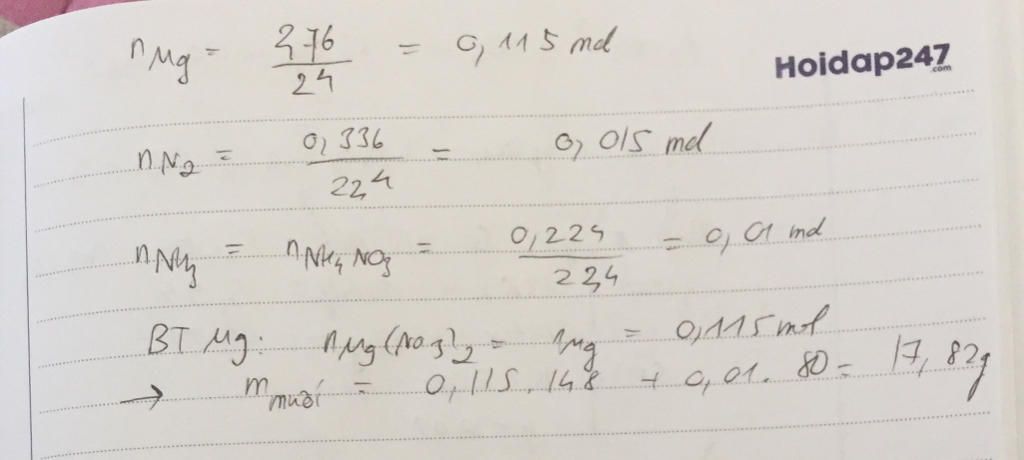 nMg = 2,76/24 = 0,115 mol
Hoidap247
.com
nN2 = 0,336/22,4 = 0,015 mol
nNH3 = nNH4NO3 = 0,224/22,4 = 0,01 mol
BT Mg: nMg(NO3)2 = nMg = 0,115 mol
→ m muối = 0,115.148 + 0,01.80 = 17,82g